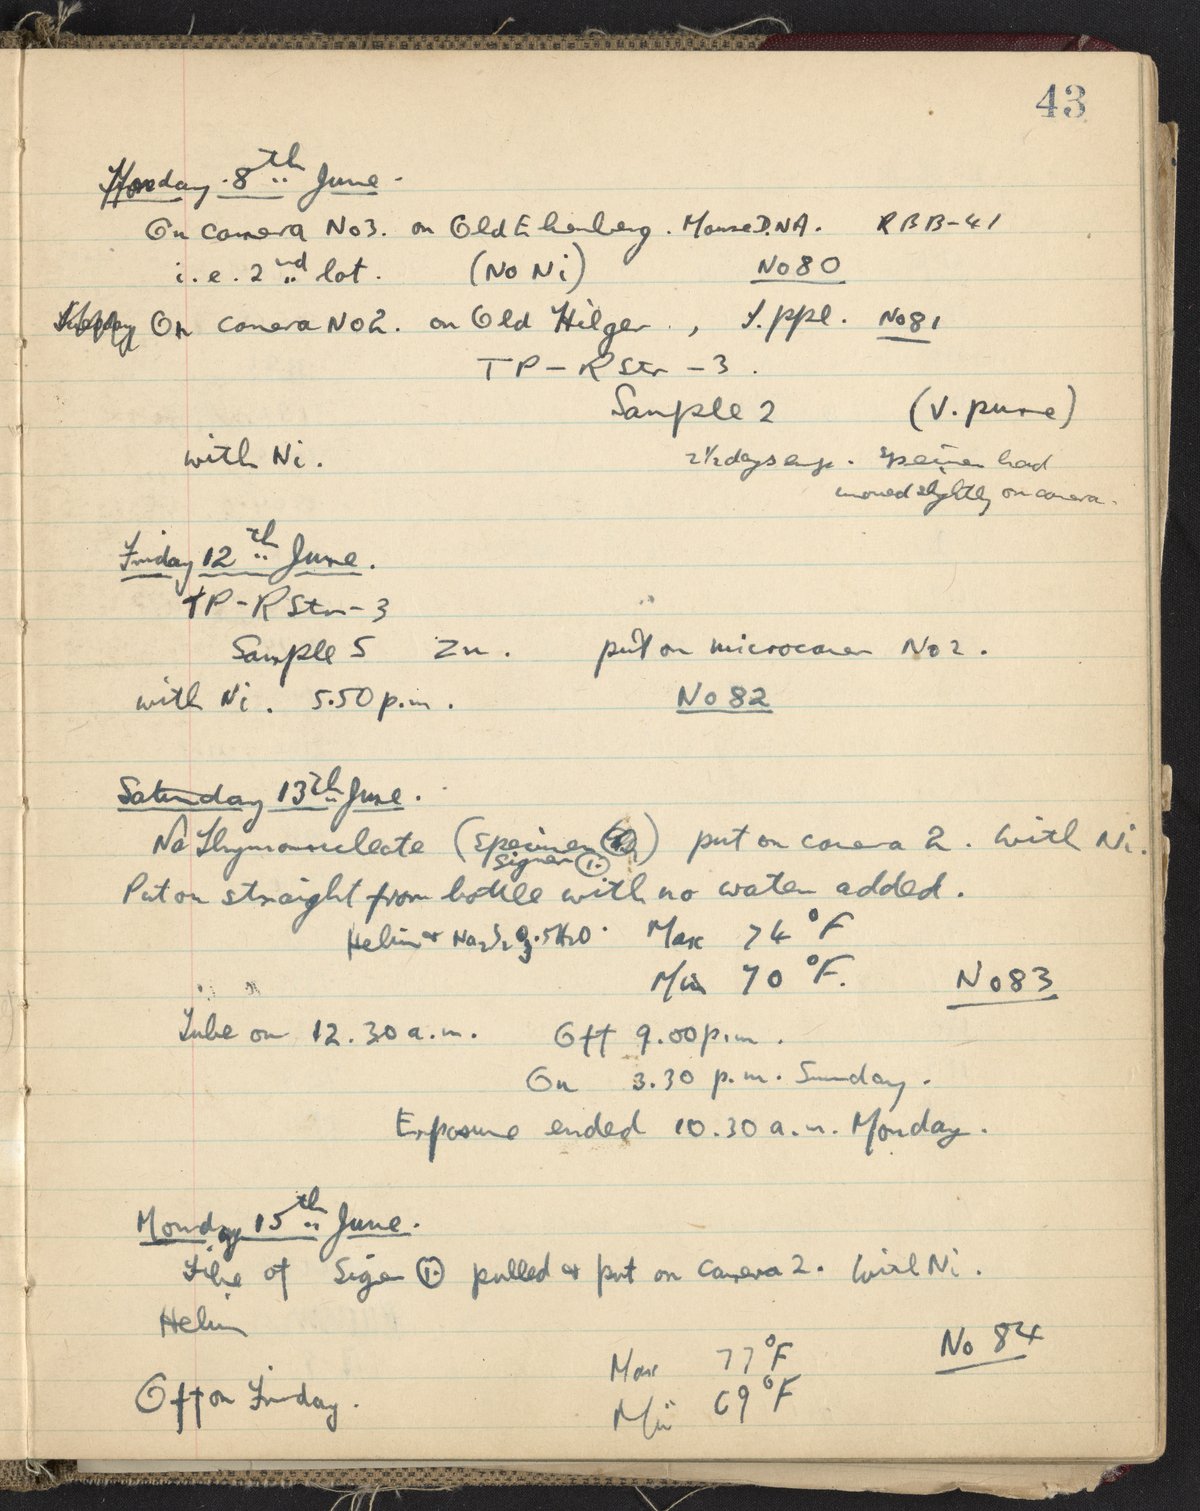 43
Monday 8th June.
On camera No3. on Old Ehrenberg. Mouse D.NA. RBB-41
i.e. 2nd lot. (No Ni) No 80
On camera No2. on Old Hilger, T.ppl. No 81
TP-RStr-3.
Sample 2 (V. pure)
with Ni. 2½ days exp. specimen had
moved slightly on camera.
Friday 12th June.
TP-RStr-3
Sample 5 Zn. put on microcamera No 2.
with Ni. 5.50 p.m. No 82
Saturday 13th June.
Na Thymonucleate (Specimen) put on camera 2. with Ni.
Signer ①
Put on straight from bottle with no water added.
Helium + Na₂S₂O₃.5H₂O. Max 74°F
Min 70°F. No 83
Tube on 12.30 a.m. Off 9.00 p.m.
On 3.30 p.m. Sunday.
Exposure ended 10.30 a.m. Monday.
Monday 15th June.
Fibre of Signer ① pulled & put on camera 2. with Ni.
Helium
No 84
Max 77°F
Off on Friday.
Min 69°F